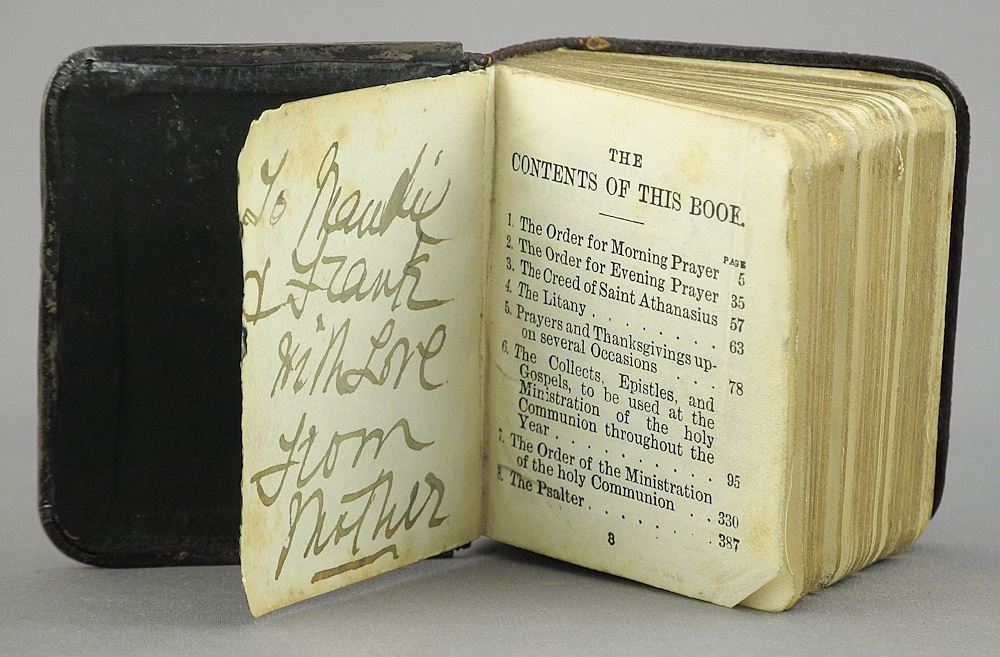 To Maudie
& Frank
With Love
From
Mother
THE
CONTENTS OF THIS BOOK.
PAGE
1. The Order for Morning Prayer 5
2. The Order for Evening Prayer 35
3. The Creed of Saint Athanasius 57
4. The Litany . . . . . . . . 63
5. Prayers and Thanksgivings up-
on several Occasions . . . . 78
6. The Collects, Epistles, and
Gospels, to be used at the
Ministration of the holy
Communion throughout the
Year . . . . . . . . . . 95
7. The Order of the Ministration
of the holy Communion . . 330
8. The Psalter . . . . . . . 387
3